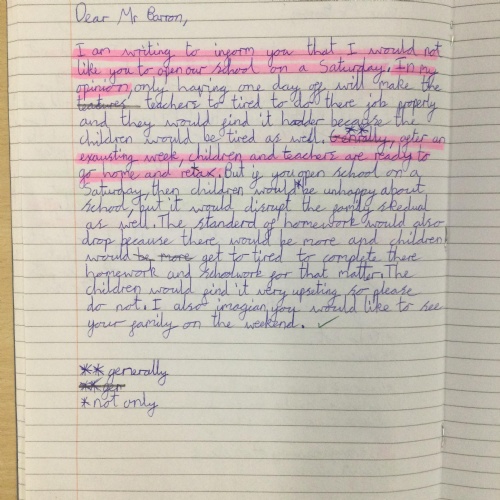 Dear Mr Barron,
I am writing to inform you that I would not
like you to open our school on a Saturday. In my
opinion, only having one day off will make the
teachers to tired to do there job properly
and they would find it harder because the
children would be tired as well. ** Genrally, after an
exausting week, children and teachers are ready to
go home and relax. But if you open school on a
Saturday, then children would * be unhappy about
school, but it would disrupt the family skedual
as well. The standerd of homework would also
drop because there would be more and children
would be more get to tired to complete there
homework and schoolwork for that matter. The
children would find it very upseting so please
do not. I also imagian you would like to see
your family on the weekend. ✓
** generally
** gen
* not only